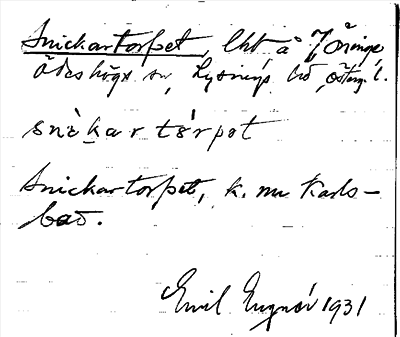 Snickartorpet, lht, å Öninge,
Ödeshögs sn, Lysings hd, Österg. l.
snèkar tórpət
Snickartorpet, k. nu Karls-
bad.
Emil 1931